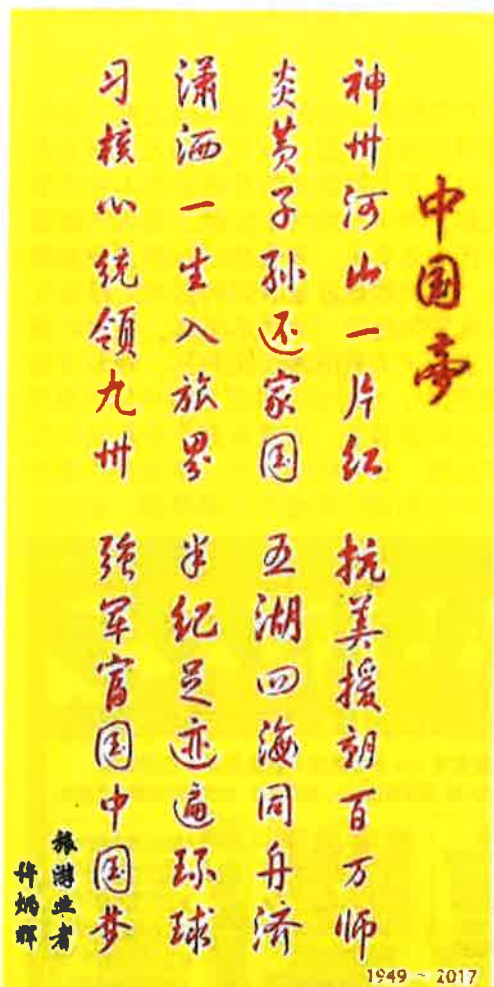 中国梦
神州河山一片红 抗美援朝百万师
炎黄子孙还家国 五湖四海同舟济
潇洒一生入旅界 半纪足迹遍环球
习核心统领九州 强军富国中国梦
旅游业者
许炳辉
1949 ~ 2017